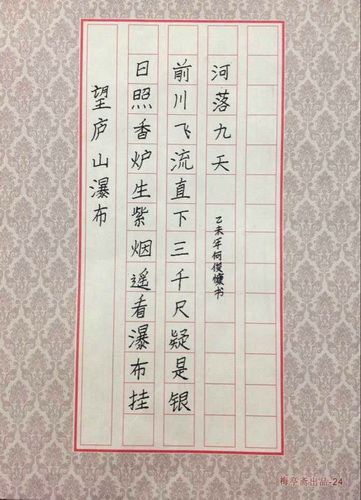 望庐山瀑布
日照香炉生紫烟遥看瀑布挂
前川飞流直下三千尺疑是银
河落九天
乙未年何俊书
梅亭斋出品-24